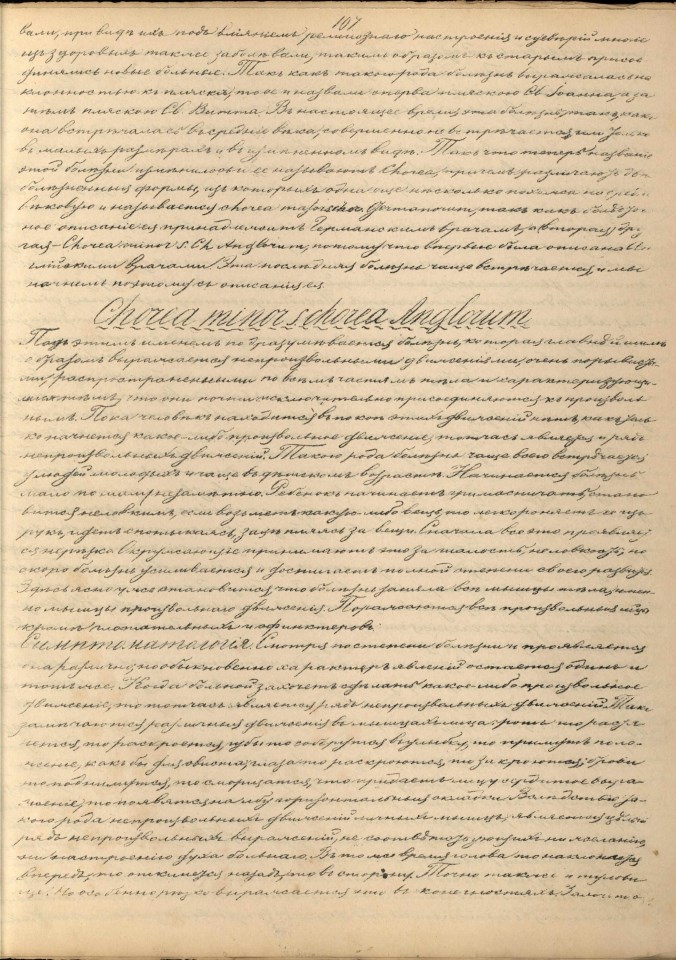 107
вали, при видѣ ихъ подъ вліяніемъ религіознаго настроенія и суевѣрій многіе
изъ здоровыхъ также заболѣвали, такимъ образомъ къ старымъ присое-
динялись новые больные. Такъ какъ такого рода болѣзнь выражалась на
клонностью къ пляскѣ, то ее и назвали сперва пляскою Св. Іоанна, а за
тѣмъ пляскою Св. Витта. Въ настоящее время эта болѣзнь, такъ какъ
она встрѣчалась въ средніе вѣка, совершенно не встрѣчается, или только
въ малыхъ размѣрахъ и въ измѣненномъ видѣ. Такъ что теперь названіе
этой болѣзни измѣнилось и ее называютъ Chorea, причемъ различаютъ двѣ
болѣзненныя формы, изъ которыхъ одна еще нѣсколько похожа на средне
вѣковую и называется chorea major s. chorea Germanorum, такъ какъ
ное описаніе ея принадлежитъ Германскимъ врачамъ, а вторая дру
гая - Chorea minor s. Ch. Anglorum, потому что впервые была описана
глійскими врачами. Эта послѣдняя болѣзнь чаще встрѣчается и мы
начнемъ поэтому съ описанія ея.
Chorea minor s. chorea Anglorum
Подъ этимъ именемъ подразумѣвается болѣзнь, которая главнымъ
образомъ выражается непроизвольными движеніями, очень порывисты-
ми, распространенными по всѣмъ частямъ тѣла и характеризующи-
мися тѣмъ, что они почти исключительно присоединяются къ произволь
нымъ. Пока человѣкъ находится въ покоѣ этихъ движеній нѣтъ, какъ толь
ко начнется какое-либо произвольное движеніе, тотчасъ явится и рядъ
непроизвольныхъ движеній. Такого рода болѣзнь чаще всего встрѣчается
у людей молодыхъ и чаще въ дѣтскомъ возрастѣ. Начинается болѣзнь
мало по малу незамѣтно. Ребенокъ начинаетъ гримасничать, стано
вится неловкимъ, если возьметъ какую либо вещь, то легко роняетъ ее изъ
рукъ, идетъ спотыкаясь, задѣвая за вещи. Сначала все это проявляет
ся нерѣзко. Окружающіе принимаютъ это за шалость, неловкость, но
скоро болѣзнь усиливается и достигаетъ полной степени своего развитія.
Здѣсь ясно уже становится что болѣзнь заняла всѣ мышцы тѣла, имен-
но мышцы произвольнаго движенія. Поражаются всѣ произвольныя мыш
кромѣ глотательныхъ и сфинктеровъ.
Симптоматологія. Смотря по степени болѣзни и проявляется
она различно, но обыкновенно характеръ явленій остается одинъ и
тотъ же. Когда больной захочетъ сдѣлать какое либо произвольное
движеніе, то тотчасъ является рядъ непроизвольныхъ движеній. Такъ
замѣчаются различныя движенія въ мышцахъ лица: ротъ то
нется, то раскроется, губы то соберутся въ улыбку, то примутъ поло-
женіе, какъ бы для свиста, глаза то раскроются, то закроются, брови
то поднимутся, то сморщатся, что придаетъ лицу сердитое выра
женіе, то появятся на лбу горизонтальныя складки. Вслѣдствіе та-
кого рода непроизвольныхъ движеній личныхъ мышцъ, является цѣлый
рядъ непроизвольныхъ выраженій, не соотвѣтствующихъ ни желанію
ни настроенію духа больнаго. Въ то же время голова то наклоняется
впередъ, то откинется назадъ, то въ сторону. Точно также и тулови
ще. Но особенно рѣзко выражается это въ конечностяхъ.